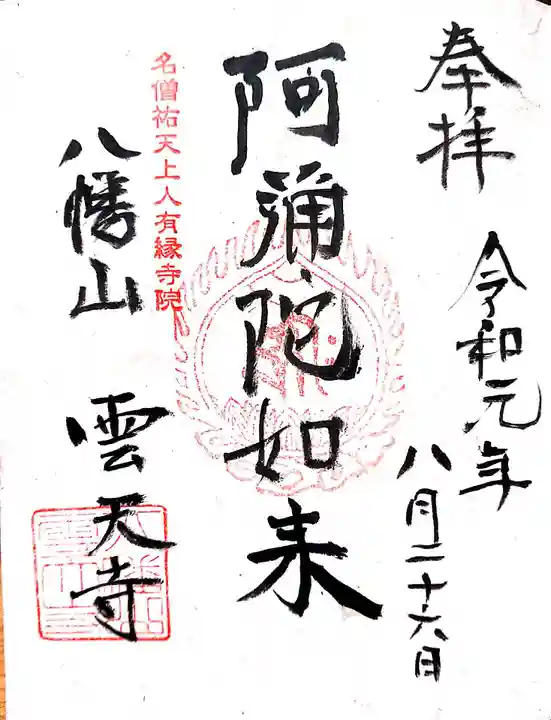 奉拝
令和元年
八月二十六日
阿彌陀如来
名僧祐天上人有縁寺院
八幡山 雲天寺